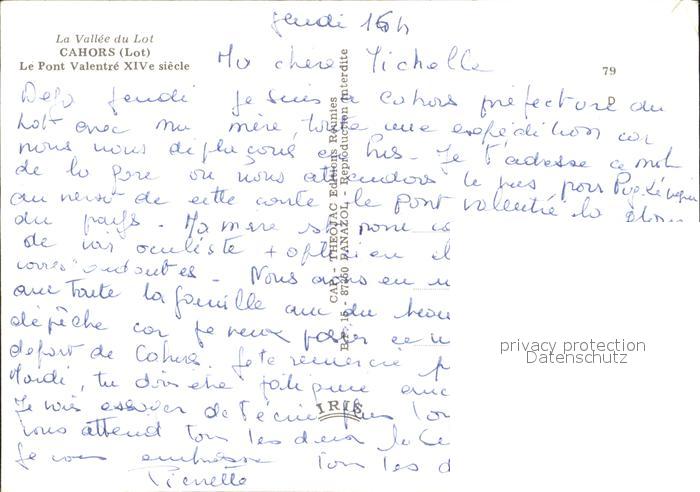 La Vallée du Lot
CAHORS (Lot)
Le Pont Valentré XIVe siècle
79
jeudi 16h
Ma chère Michelle
Déjà jeudi je suis à Cahors préfecture du
Lot avec ma mère, toute une expédition car
nous nous déplaçons en bus. Je t'adresse ce mot
de la gare où nous attendons le bus pour
au verso de cette carte le pont valentré la
du pays. Ma mère
de voir oculiste + opticien
Nous avons eu
toute la famille du
dépêche car je veux poster ce
départ de Cahors. Je te remercie p
Mardi, tu dois être fatiguée
Je vais essayer de t'écrire plus lon
vous attend tous les deux
Je vous embrasse tous les d
CAP - THEOJAC Editions Réunies
B.P. 15 - 87350 PANAZOL - Reproduction Interdite
IRIS
privacy protection
Datenschutz